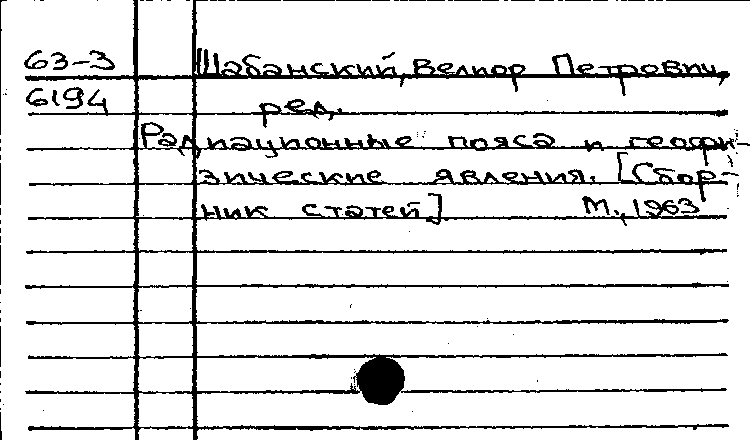 63-3 Шабанский, Велиор Петрович,
6194 ред.
Радиационные пояса и геофи-
зические явления. [Сбор-
ник статей] М., 1963